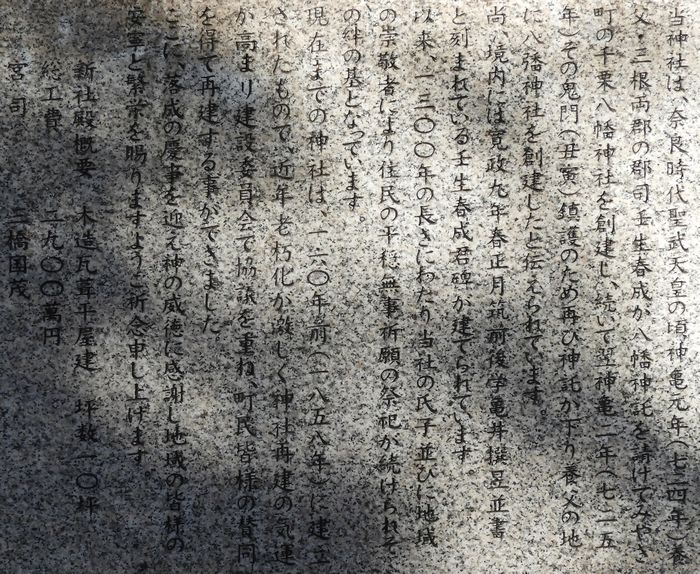 当神社は、奈良時代聖武天皇の頃神亀元年(七二四年)養
父・三根両郡の郡司壬生春成が八幡神託を請けてみやき
町の千栗八幡神社を創建し、続いて翌神亀二年(七二五
年)その鬼門(丑寅)鎮護のため再び神託が下り養父の地
に八幡神社を創建したと伝えられています。
尚、境内には寛政九年春正月筑前後学亀井撰昱並書
と刻まれている壬生春成君碑が建てられています。
以来、一三〇〇年の長きにわたり当社の氏子並びに地域
の崇敬者により住民の平穏無事祈願の祭祀が続けられそ
の絆の基となっています。
現在までの神社は、一六〇年前(一八五八年)に建立
されたもので、近年老朽化が激しく神社再建の気運
が高まり建設委員会で協議を重ね、町民皆様の賛同
を得て再建する事ができました。
ここに、落成の慶事を迎え神の威徳に感謝し地域の皆様の
安寧と繁栄を賜りますようご祈念申し上げます
新社殿概要 木造瓦葺平屋建 坪数一〇坪
総工費 二九〇〇萬円
宮司 三橋国茂